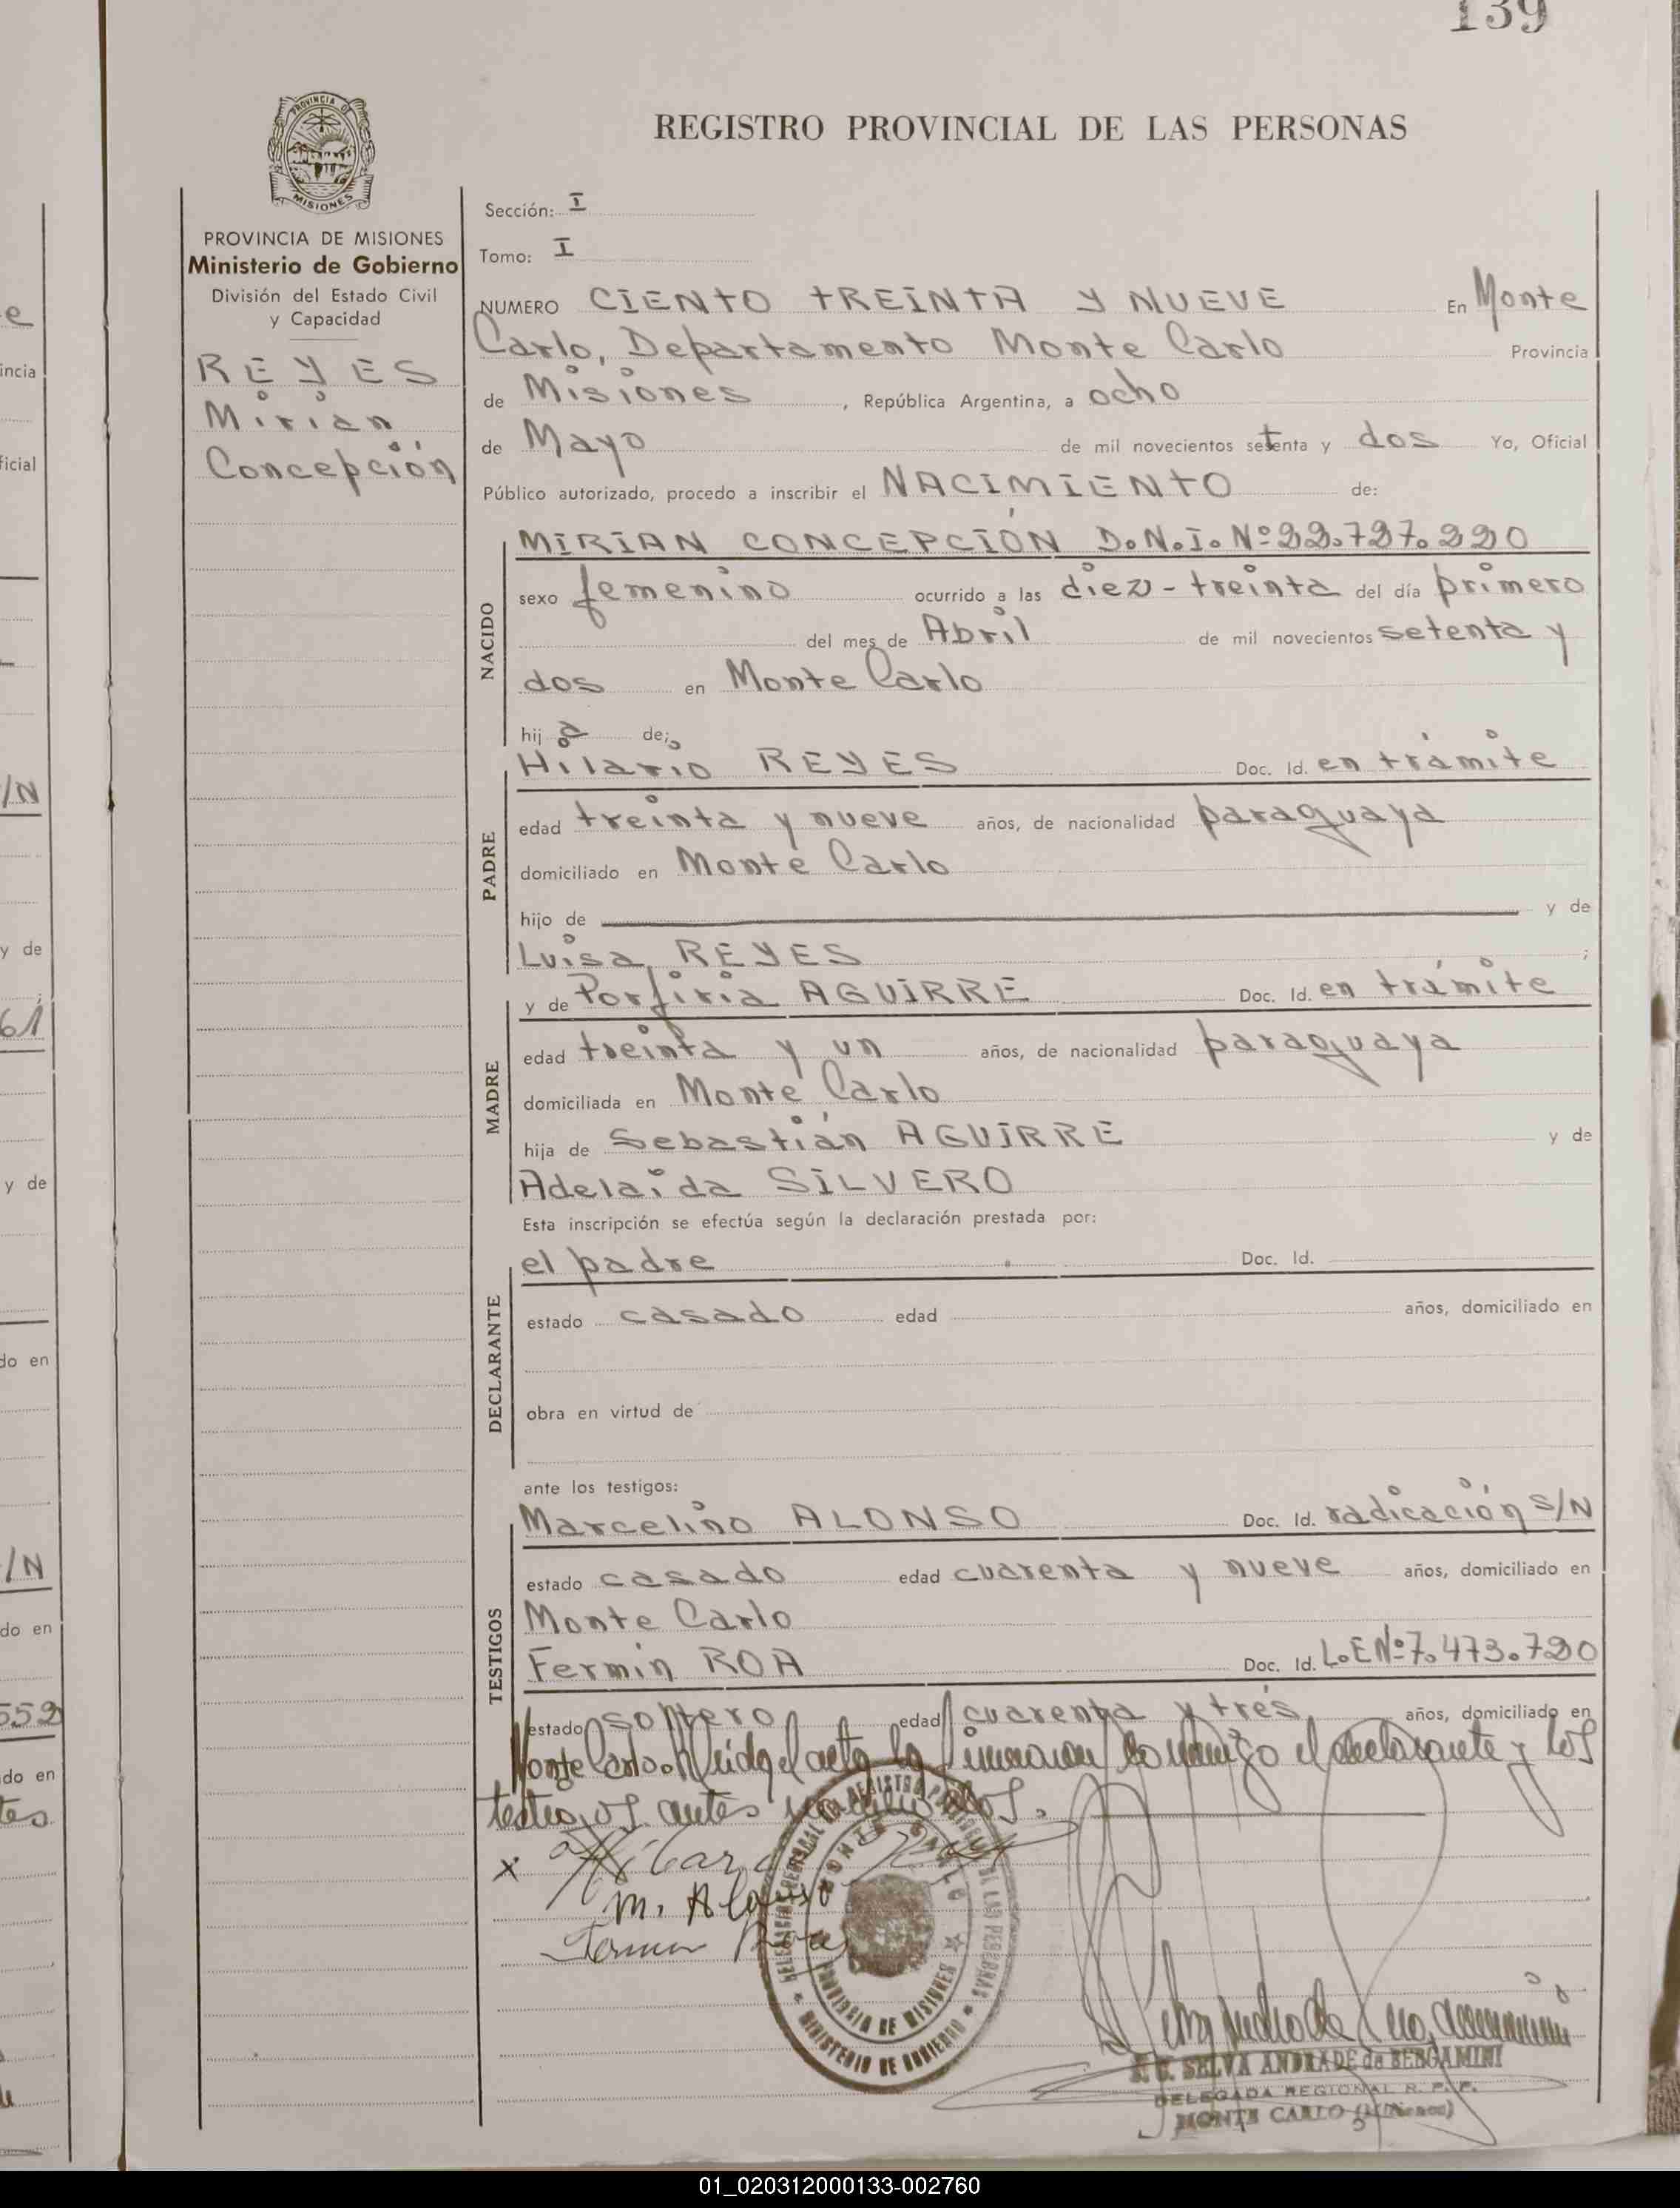 139
PROVINCIA DE
MISIONES
REGISTRO PROVINCIAL DE LAS PERSONAS
PROVINCIA DE MISIONES
Ministerio de Gobierno
División del Estado Civil
y Capacidad
REYES
Mirian
Concepción
Sección: I
Tomo: I
NUMERO CIENTO TREINTA Y NUEVE En Monte
Carlo, Departamento Monte Carlo Provincia
de Misiones, República Argentina, a ocho
de Mayo de mil novecientos setenta y dos Yo, Oficial
Público autorizado, procedo a inscribir el NACIMIENTO de:
NACIDO
MIRIAN CONCEPCIÓN D.N.I. Nº 22.727.220
sexo femenino ocurrido a las diez-treinta del día primero
del mes de Abril de mil novecientos setenta y
dos en Monte Carlo
hija de:
PADRE
Hilario REYES Doc. Id. en trámite
edad treinta y nueve años, de nacionalidad paraguaya
domiciliado en Monte Carlo
hijo de y de
Luisa REYES ;
MADRE
y de Porfiria AGUIRRE Doc. Id. en trámite
edad treinta y un años, de nacionalidad paraguaya
domiciliada en Monte Carlo
hija de Sebastián AGUIRRE y de
Adelaida SILVERO
Esta inscripción se efectúa según la declaración prestada por:
DECLARANTE
el padre Doc. Id.
estado casado edad años, domiciliado en
obra en virtud de
ante los testigos:
TESTIGOS
Marcelino ALONSO Doc. Id. radicación S/N
estado casado edad cuarenta y nueve años, domiciliado en
Monte Carlo
Fermín ROA Doc. Id. L.E Nº 7.473.720
estado soltero edad cuarenta y tres años, domiciliado en
Monte Carlo. Leída el acta la firmaron conmigo el declarante y los
testigos antes mencionados.
x Hilario Reyes
M. Alonso
Fermin Roa
DELEGACION REGIONAL DEL REGISTRO PROVINCIAL DE LAS PERSONAS
MONTE CARLO
PROVINCIA DE MISIONES
MINISTERIO DE GOBIERNO
SELVA ANDRADE de BERGAMINI
DELEGADA REGIONAL R. P. P.
MONTE CARLO (Misiones)
e
incia
ficial
/N
y de
61
y de
do en
/N
do en
552
do en
tes
01_020312000133-002760